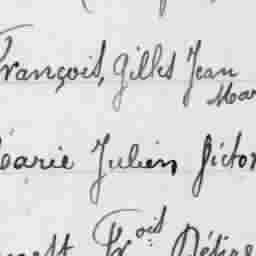 François, Gilles Jean
Mar
Marie Julien Victor
Fr ois Désiré